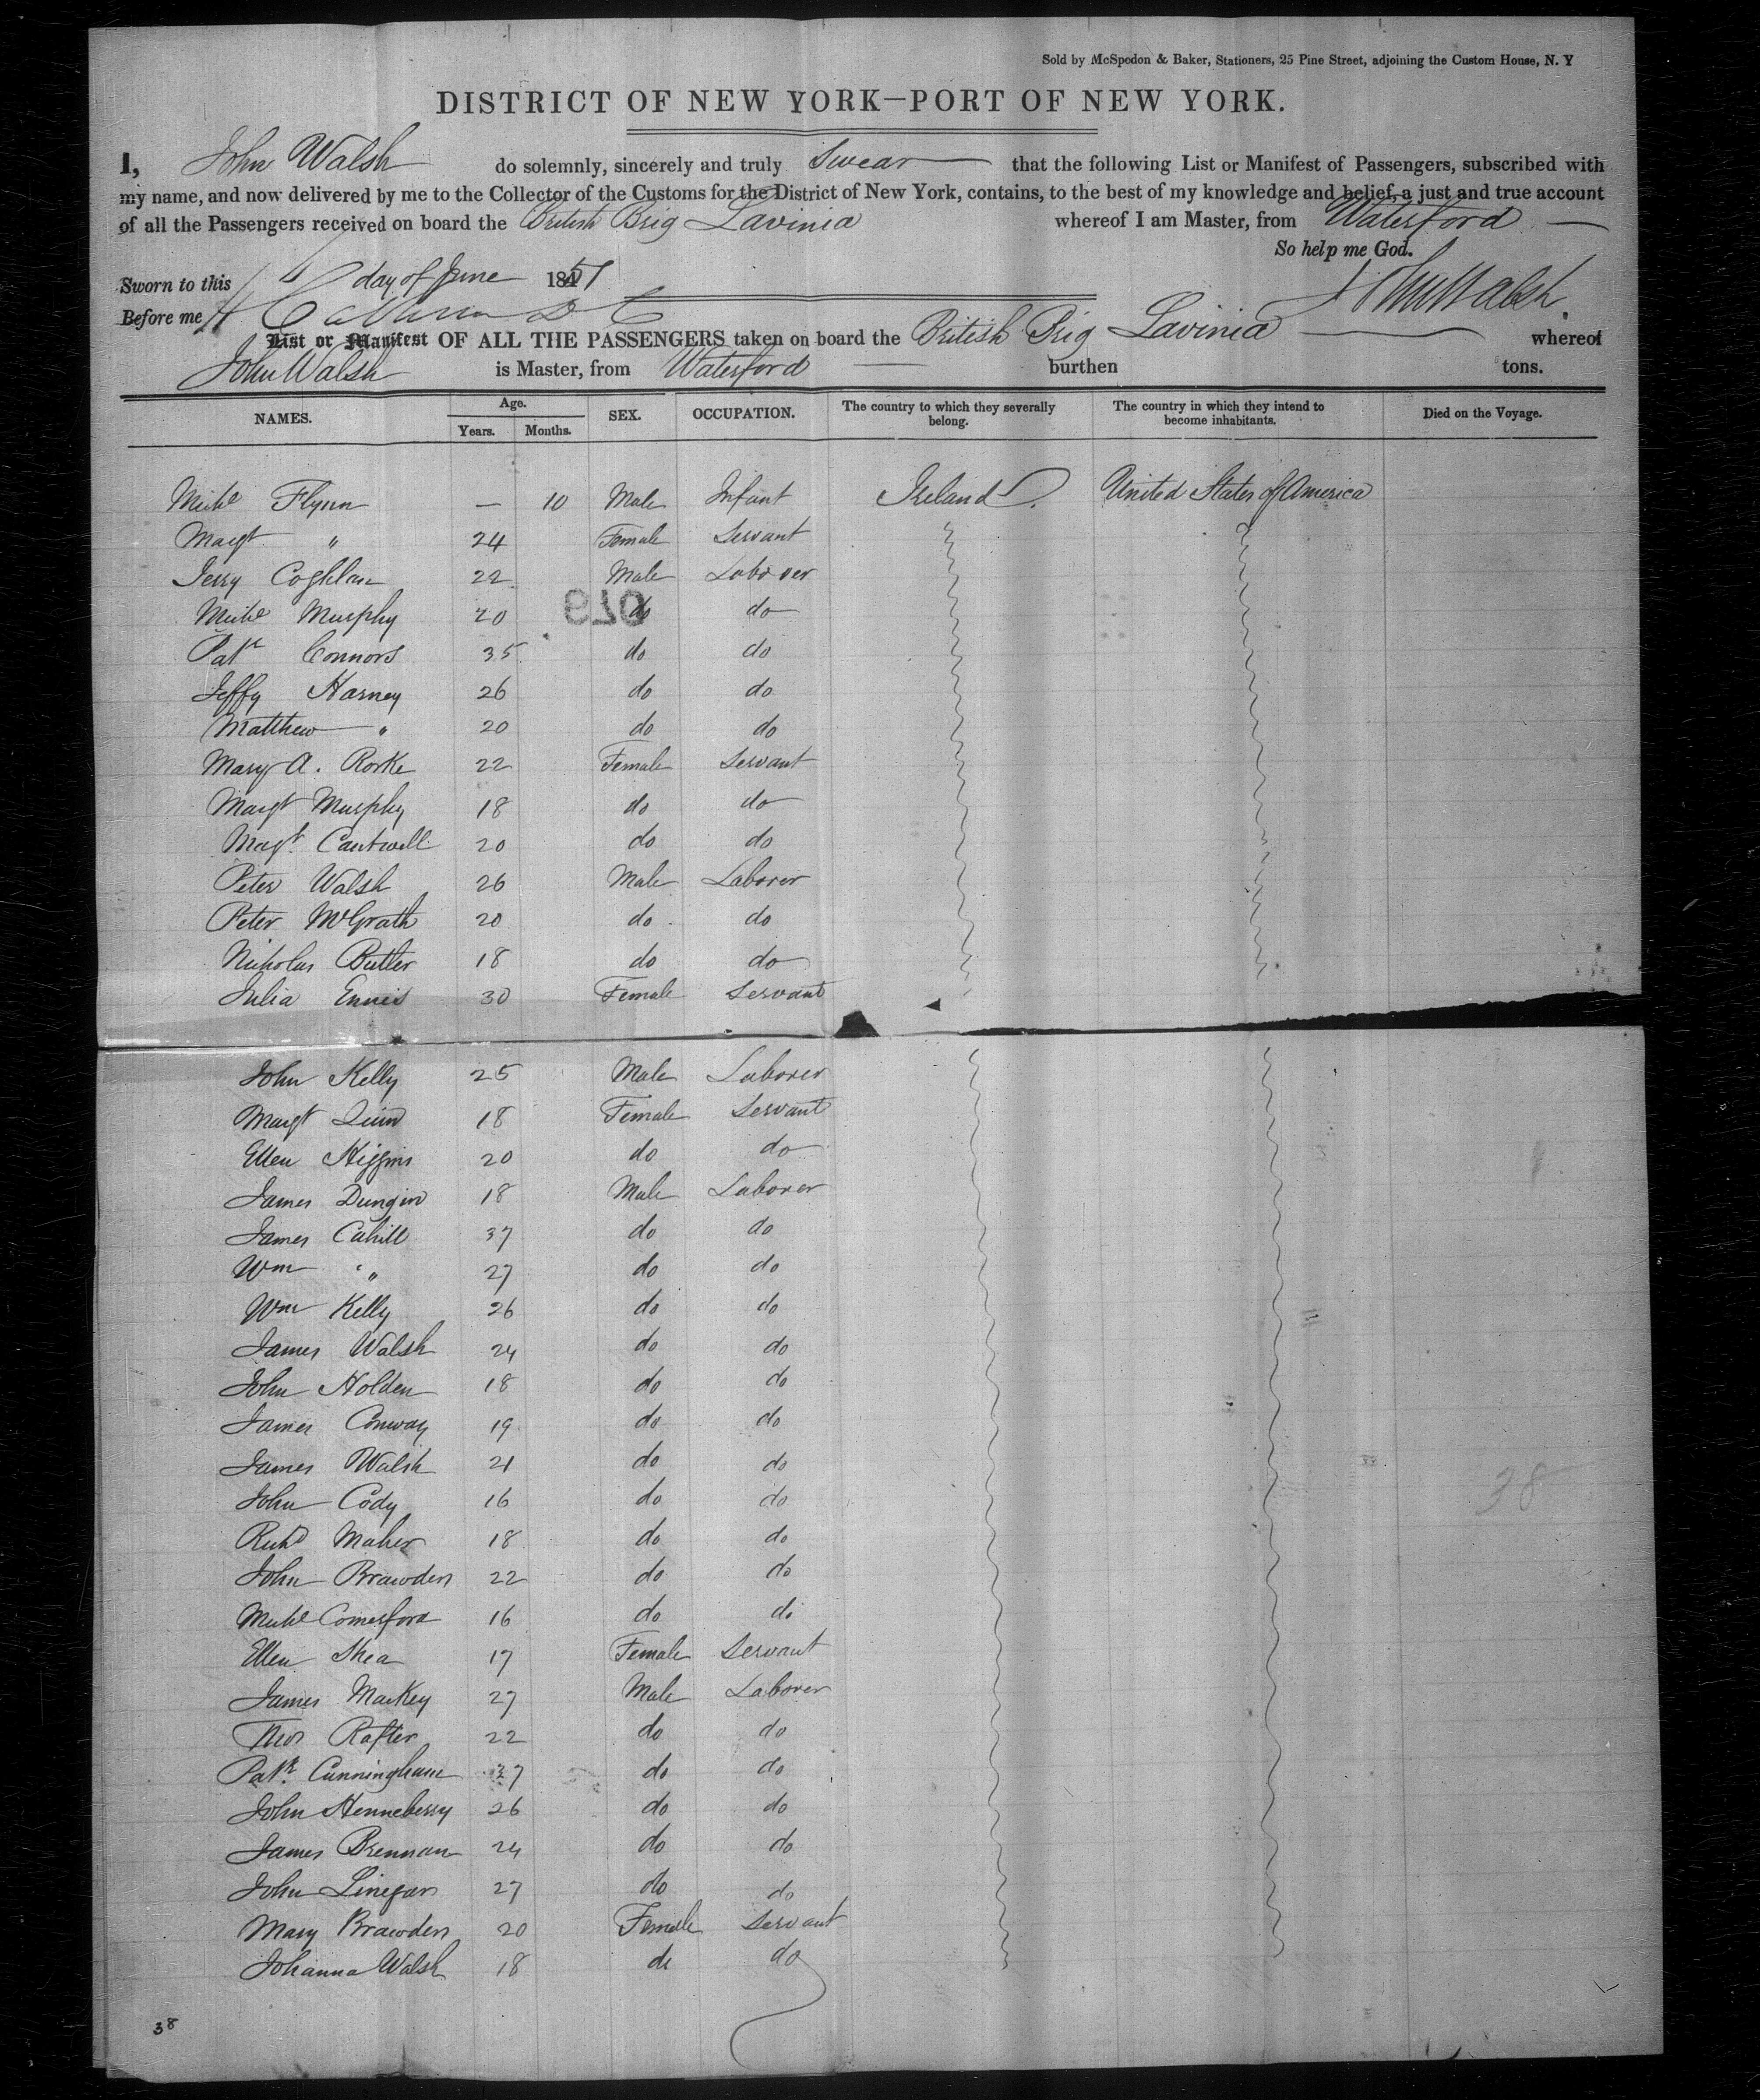 Sold by McSpedon & Baker, Stationers, 25 Pine Street, adjoining the Custom House, N. Y
DISTRICT OF NEW YORK—PORT OF NEW YORK.
I, John Walsh do solemnly, sincerely and truly swear that the following List or Manifest of Passengers, subscribed with
my name, and now delivered by me to the Collector of the Customs for the District of New York, contains, to the best of my knowledge and belief, a just and true account
of all the Passengers received on board the British Brig Lavinia whereof I am Master, from Waterford
So help me God.
Sworn to this day of June 1851 John Walsh
Before me
List or Manifest OF ALL THE PASSENGERS taken on board the British Brig Lavinia whereof
John Walsh is Master, from Waterford burthen tons.
NAMES. Age. Years. Months. SEX. OCCUPATION. The country to which they severally belong. The country in which they intend to become inhabitants. Died on the Voyage.
Michl Flynn — 10 Male Infant Ireland. United States of America
Margt " 24 Female Servant
Jerry Coghlan 22 Male Laborer
Michl Murphy 20 do do
079
Patk Connors 35 do do
Jeffy Harney 26 do do
Matthew " 20 do do
Mary A. Rorke 22 Female Servant
Margt Murphy 18 do do
Magt Cantwell 20 do do
Peter Walsh 26 Male Laborer
Peter McGrath 20 do do
Nicholas Butler 18 do do
Julia Ennis 30 Female Servant
John Kelly 25 Male Laborer
Margt Quin 18 Female Servant
Ellen Higgins 20 do do
James Dungin 18 Male Laborer
James Cahill 37 do do
Wm " 27 do do
Wm Kelly 26 do do
James Walsh 24 do do
John Holden 18 do do
James Conway 19 do do
James Walsh 21 do do
John Cody 16 do do
38
Richd Maher 18 do do
John Brawders 22 do do
Michl Comerford 16 do do
Ellen Shea 17 Female Servant
James Mackey 27 Male Laborer
Thos Rafter 22 do do
Patk Cunningham 27 do do
John Henneberry 26 do do
James Brennan 24 do do
John Linegar 27 do do
Mary Brawders 20 Female Servant
Johanna Walsh 18 do do
38